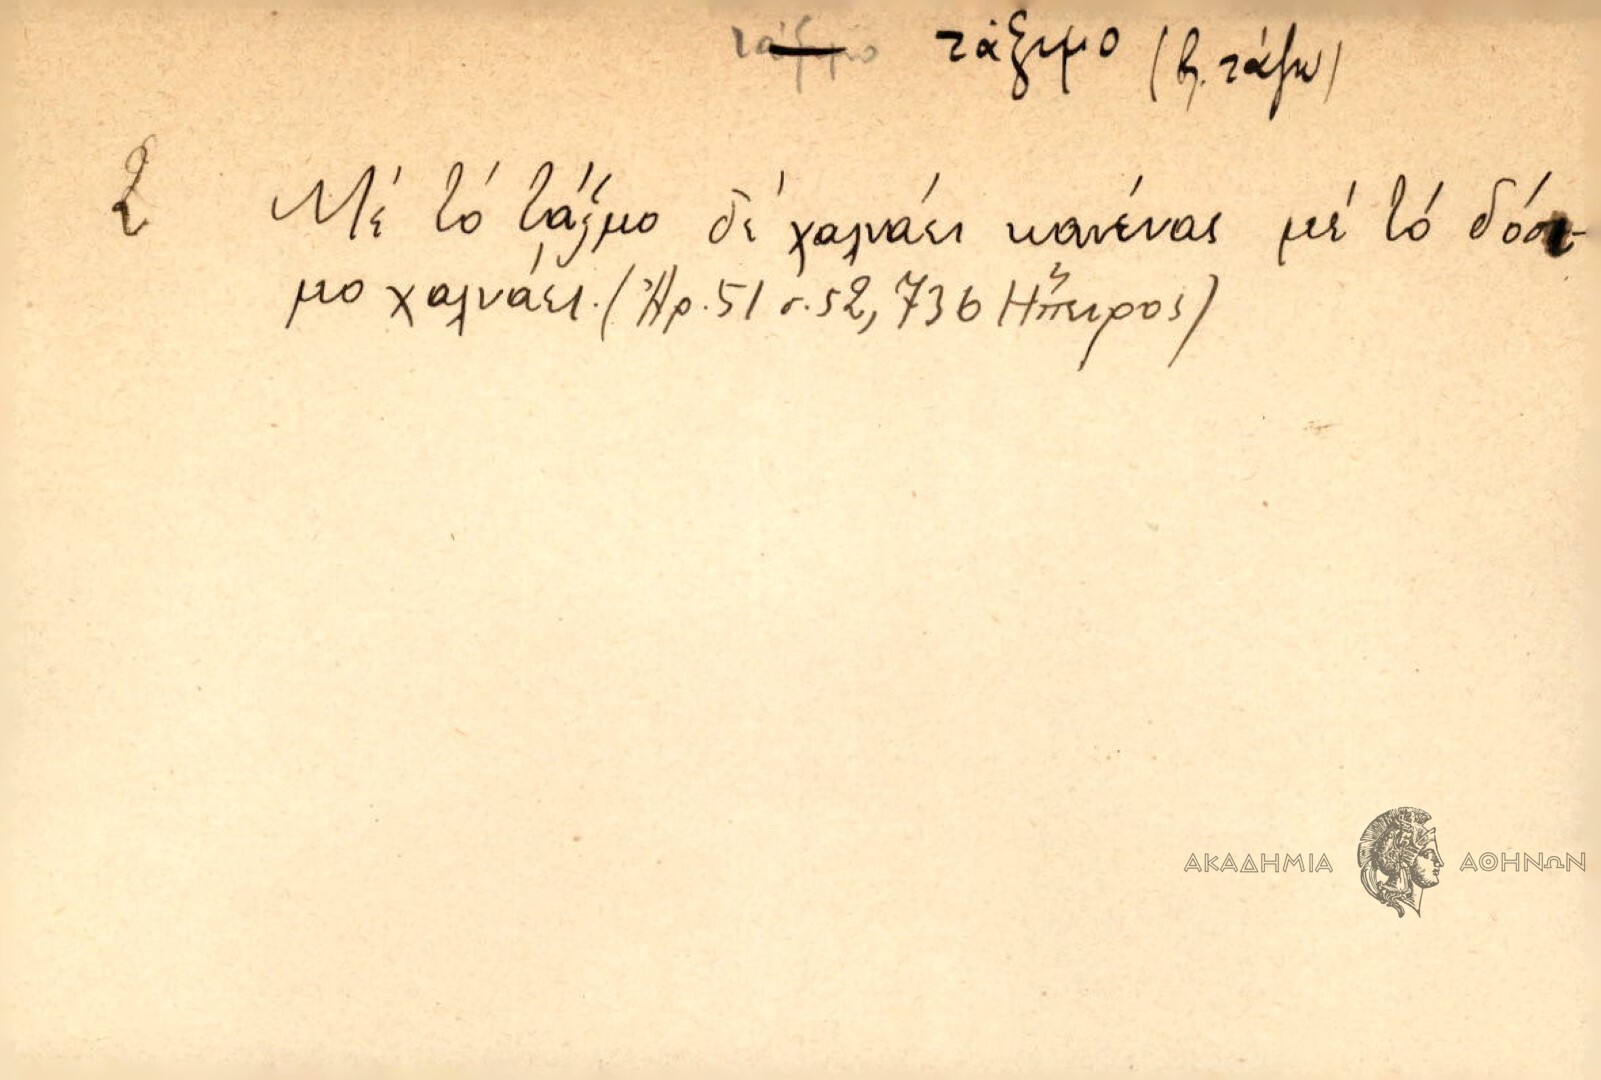 τάξμο τάξιμο (β. τάζω)
2 Μέ τό τάξμο δέ χαλνάει κανένας μέ τό δόσι-
μο χαλνάει. (Ἀρ. 51 σ. 52, 736 Ἤπειρος)
ΑΚΑΔΗΜΙΑ ΑΘΗΝΩΝ